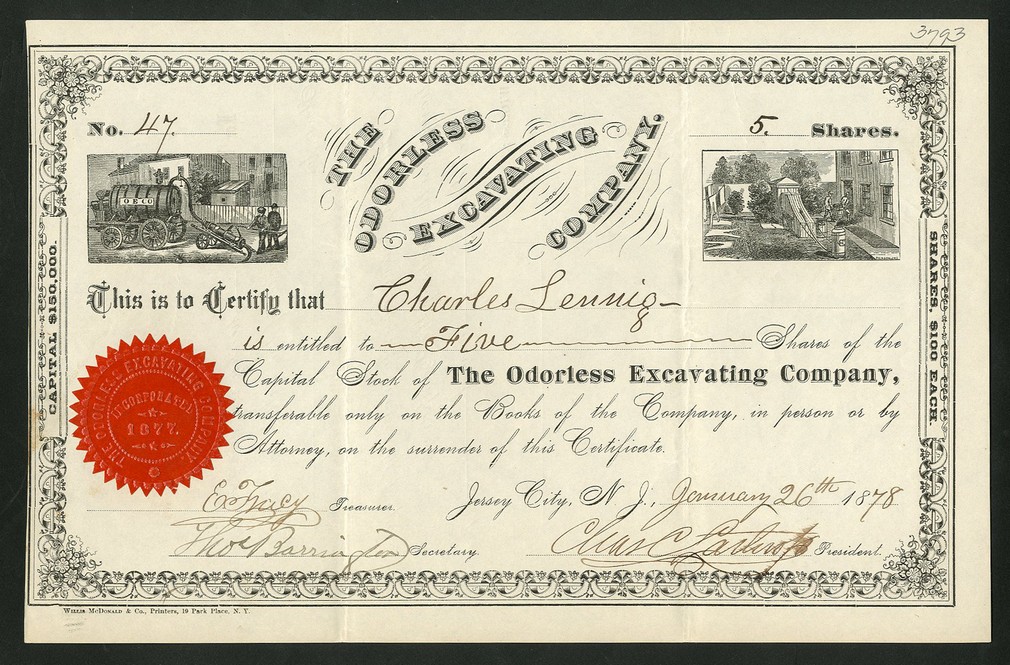 3793
No. 47.
5. Shares.
THE
ODORLESS
EXCAVATING
COMPANY.
O E CO
CAPITAL $150,000.
SHARES, $100 EACH.
This is to Certify that Charles Lennig
is entitled to Five Shares of the
Capital Stock of The Odorless Excavating Company,
transferable only on the Books of the Company, in person or by
Attorney, on the surrender of this Certificate.
THE ODORLESS EXCAVATING COMPANY.
INCORPORATED
1877.
Jersey City, N. J., January 26th 1878
E Tracy Treasurer.
Thos Barrington Secretary.
Chas C President.
WILLIS McDONALD & Co., Printers, 19 Park Place, N. Y.